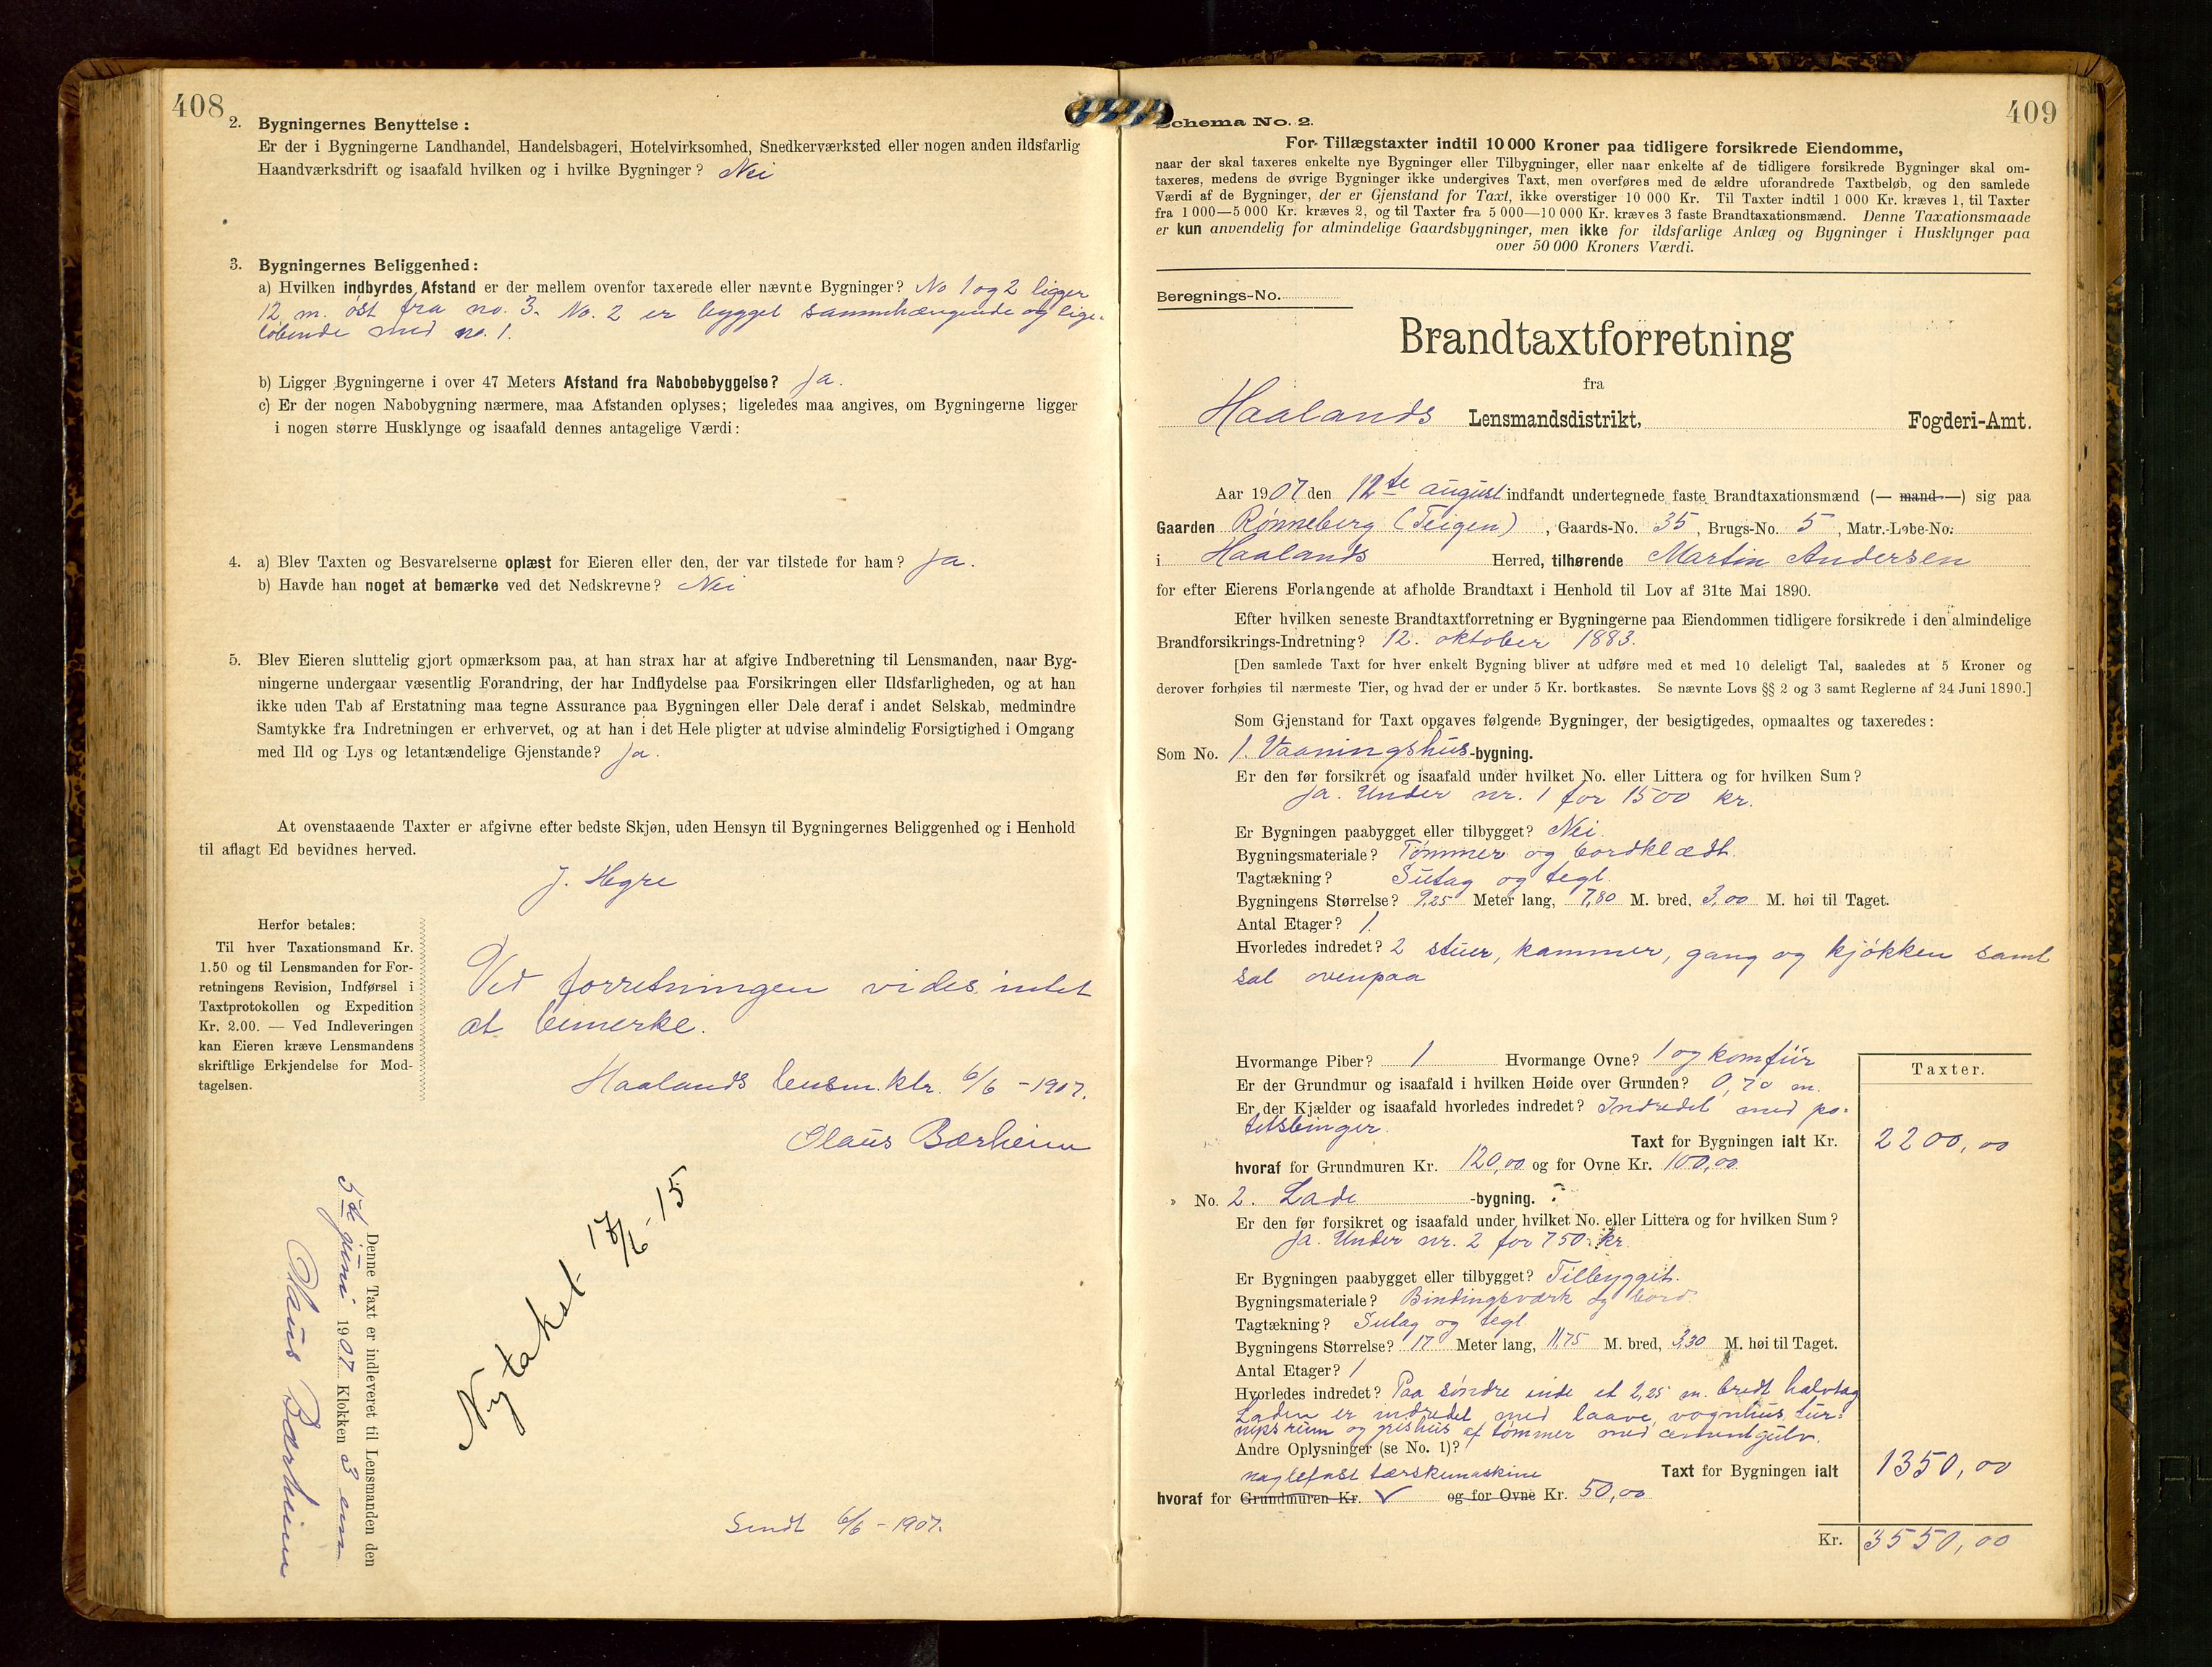 408
2. Bygningernes Benyttelse:
Er der i Bygningerne Landhandel, Handelsbageri, Hotelvirksomhed, Snedkerværksted eller nogen anden ildsfarlig
Haandværksdrift og isaafald hvilken og i hvilke Bygninger? Nei
3. Bygningernes Beliggenhed:
a) Hvilken indbyrdes Afstand er der mellem ovenfor taxerede eller nævnte Bygninger? No 1 og 2 ligger
12 m. øst fra no. 3. No. 2 er bygget sammhængende og lige-
løbende med no. 1.
b) Ligger Bygningerne i over 47 Meters Afstand fra Nabobebyggelse? Ja.
c) Er der nogen Nabobygning nærmere, maa Afstanden oplyses; ligeledes maa angives, om Bygningerne ligger
i nogen større Husklynge og isaafald dennes antagelige Værdi:
4. a) Blev Taxten og Besvarelserne oplæst for Eieren eller den, der var tilstede for ham? Ja.
b) Havde han noget at bemærke ved det Nedskrevne? Nei
5. Blev Eieren sluttelig gjort opmærksom paa, at han strax har at afgive Indberetning til Lensmanden, naar Byg-
ningerne undergaar væsentlig Forandring, der har Indflydelse paa Forsikringen eller Ildsfarligheden, og at han
ikke uden Tab af Erstatning maa tegne Assurance paa Bygningen eller Dele deraf i andet Selskab, medmindre
Samtykke fra Indretningen er erhvervet, og at han i det Hele pligter at udvise almindelig Forsigtighed i Omgang
med Ild og Lys og letantændelige Gjenstande? Ja.
At ovenstaaende Taxter er afgivne efter bedste Skjøn, uden Hensyn til Bygningernes Beliggenhed og i Henhold
til aflagt Ed bevidnes herved.
J. Hegre
Herfor betales:
Til hver Taxationsmand Kr.
1.50 og til Lensmanden for For-
retningens Revision, Indførsel i
Taxtprotokollen og Expedition
Kr. 2.00. — Ved Indleveringen
kan Eieren kræve Lensmandens
skriftlige Erkjendelse for Mod-
tagelsen.
Ved forretningen vides intet
at bemerke.
Haalands lensm.ktr. 6/6 - 1907.
Olaus Bærheim
Denne Taxt er indleveret til Lensmanden den
5te juni 1907 Klokken 3 em
Olaus Bærheim
Nytakst 17/6 - 15
Sendt 6/6 - 1907.
409
Schema No. 2.
For Tillægstaxter indtil 10 000 Kroner paa tidligere forsikrede Eiendomme,
naar der skal taxeres enkelte nye Bygninger eller Tilbygninger, eller naar enkelte af de tidligere forsikrede Bygninger skal om-
taxeres, medens de øvrige Bygninger ikke undergives Taxt, men overføres med de ældre uforandrede Taxtbeløb, og den samlede
Værdi af de Bygninger, der er Gjenstand for Taxt, ikke overstiger 10 000 Kr. Til Taxter indtil 1 000 Kr. kræves 1, til Taxter
fra 1 000—5 000 Kr. kræves 2, og til Taxter fra 5 000—10 000 Kr. kræves 3 faste Brandtaxationsmænd. Denne Taxationsmaade
er kun anvendelig for almindelige Gaardsbygninger, men ikke for ildsfarlige Anlæg og Bygninger i Husklynger paa
over 50 000 Kroners Værdi.
Beregnings-No.
Brandtaxtforretning
fra
Haalands Lensmandsdistrikt, Fogderi-Amt.
Aar 1907 den 12te august indfandt undertegnede faste Brandtaxationsmænd (— mand —) sig paa
Gaarden Rønneberg (Teigen), Gaards-No. 35, Brugs-No. 5, Matr.-Løbe-No.
i Haalands Herred, tilhørende Martin Andersen
for efter Eierens Forlangende at afholde Brandtaxt i Henhold til Lov af 31te Mai 1890.
Efter hvilken seneste Brandtaxtforretning er Bygningerne paa Eiendommen tidligere forsikrede i den almindelige
Brandforsikrings-Indretning? 12. oktober 1883.
[Den samlede Taxt for hver enkelt Bygning bliver at udføre med et med 10 deleligt Tal, saaledes at 5 Kroner og
derover forhøies til nærmeste Tier, og hvad der er under 5 Kr. bortkastes. Se nævnte Lovs §§ 2 og 3 samt Reglerne af 24 Juni 1890.]
Som Gjenstand for Taxt opgaves følgende Bygninger, der besigtigedes, opmaaltes og taxeredes:
Som No. 1. Vaaningshus-bygning.
Er den før forsikret og isaafald under hvilket No. eller Littera og for hvilken Sum?
Ja. Under nr. 1 for 1500 kr.
Er Bygningen paabygget eller tilbygget? Nei.
Bygningsmateriale? Tømmer og bordklædt.
Tagtækning? Sutag og tegl.
Bygningens Størrelse? 9,25 Meter lang, 7,80 M. bred, 3,00 M. høi til Taget.
Antal Etager? 1.
Hvorledes indredet? 2 stuer, kammer, gang og kjøkken samt
sal ovenpaa
Hvormange Piber? 1 Hvormange Ovne? 1 og komfür
Er der Grundmur og isaafald i hvilken Høide over Grunden? 0,70 m.
Er der Kjælder og isaafald hvorledes indredet? Indredet med po-
tetsbinger.
Taxter.
Taxt for Bygningen ialt Kr. 2200,00
hvoraf for Grundmuren Kr. 120,00 og for Ovne Kr. 100,00
» No. 2. Lade -bygning.
Er den før forsikret og isaafald under hvilket No. eller Littera og for hvilken Sum?
Ja. Under nr. 2 for 750 kr.
Er Bygningen paabygget eller tilbygget? Tilbygget.
Bygningsmateriale? Bindingsværk og bord.
Tagtækning? Sutag og tegl.
Bygningens Størrelse? 17 Meter lang, 11,75 M. bred, 3,30 M. høi til Taget.
Antal Etager? 1
Hvorledes indredet? Paa søndre ende et 2,25 m. bredt halvtag
Laden er indredet med laave, vognhus, tur-
nipsrum og grishus af tømmer med cementgulv.
Andre Oplysninger (se No. 1)?
naglefast tærskemaskine Taxt for Bygningen ialt 1350,00
hvoraf for Grundmuren Kr. og for Ovne Kr. 50,00
Kr. 3550,00